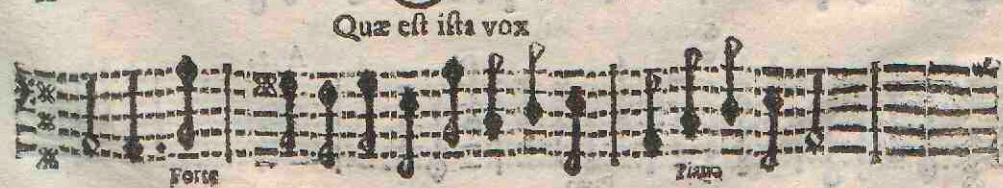 Quæ eſt iſta vox
Forte Piano